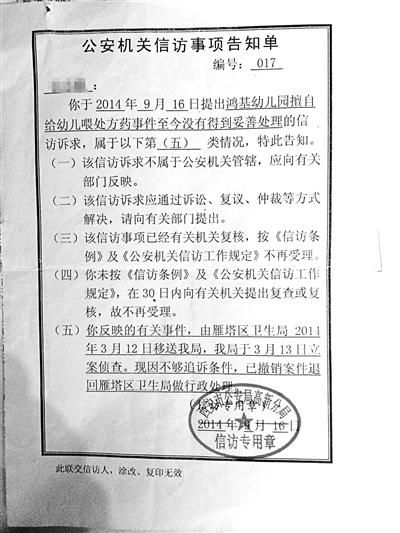 公安机关信访事项告知单
编号： 017
：
你于 2014 年 9 月 16 日提出鸿基幼儿园擅自
给幼儿喂处方药事件至今没有得到妥善处理的信
访诉求，属于以下第（五） 类情况，特此告知。
（一）该信访诉求不属于公安机关管辖，应向有关
部门反映。
（二）该信访诉求应通过诉讼、复议、仲裁等方式
解决，请向有关部门提出。
（三）该信访事项已经有关机关复核，按《信访条
例》及《公安机关信访工作规定》不再受理。
（四）你未按《信访条例》及《公安机关信访工作
规定》，在 30 日内向有关机关提出复查或复
核，故不再受理。
（五）你反映的有关事件，由雁塔区卫生局 2014
年 3 月 12 日移送我局，我局于 3 月 13 日立
案侦查。现因不够追诉条件，已撤销案件退
回雁塔区卫生局做行政处理。
西安市公安局高新分局
（专用章）
2014 年 9 月 16 日
信访专用章
此联交信访人，涂改、复印无效